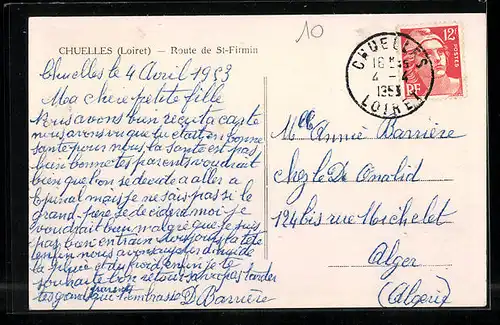 10
CHUELLES (Loiret) — Route de St-Firmin
Chuelles le 4 Avril 1953
Ma chere petite fille
Nous avons bien reçu ta carte
nous avons vu que tu etait en bonne
sante pour nous la sante est pas
bien bonne tes parents voudrait
bien que l'on se decide a aller a
Epinal mais je ne sais pas si le
grand-pere se decidera moi je
voudrait bien malgre que je suis
pas bien entrain
enfin nous avons
la pluie et du froid enfin je te
souhaite bon retour sa va pas tarder
tes grands parents que t'embrasse D Barrière
CHUELLES
18H
4 - 4
1953
LOIRET
12F
POSTES
RF
Mlle Annie Barrière
chez le Dr
124 bis rue Michelet
Alger
(Algerie)